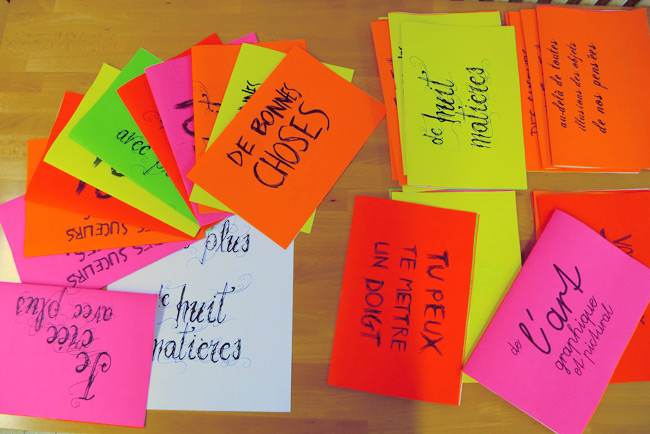 DE BONNES
CHOSES
avec p
DES SUCEURS
DES SUCEURS
plus
de huit
matieres
Je
crée
avec plus
de huit
matieres
au-delà de toutes
illusions des objets
de nos pensées
TU PEUX
TE METTRE
UN DOIGT
de l'art
graphique
et pictural